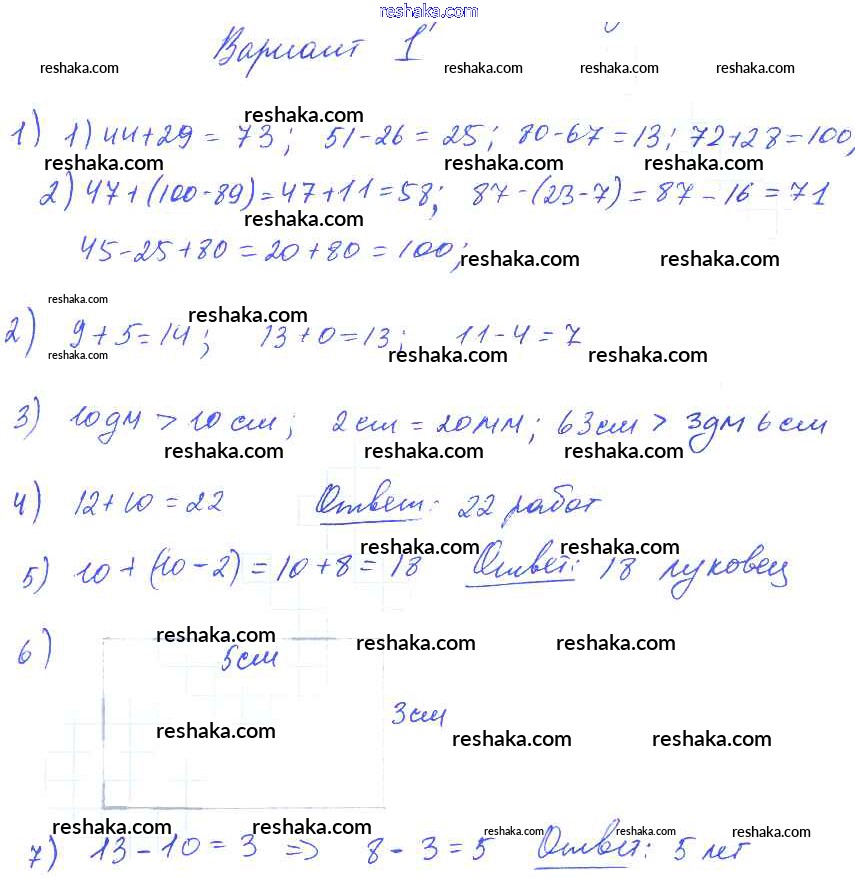 reshaka.com
Вариант 1
reshaka.com reshaka.com reshaka.com reshaka.com
reshaka.com
1) 1) 44+29 = 73; 51-26 = 25; 80-67 = 13; 72+28 = 100,
reshaka.com reshaka.com reshaka.com
2) 47+(100-89)=47+11=58; 87-(23-7)=87-16=71
reshaka.com
45-25+80=20+80=100;
reshaka.com reshaka.com
reshaka.com reshaka.com
2) 9+5=14; 13+0=13; 11-4=7
reshaka.com reshaka.com reshaka.com
3) 10дм > 10см; 2см = 20мм; 63см > 3дм 6см
reshaka.com reshaka.com reshaka.com
4) 12+10=22 Ответ: 22 работ
reshaka.com reshaka.com
5) 10+(10-2)=10+8=18 Ответ: 18 луковец
reshaka.com reshaka.com reshaka.com
6) 5см
3см
reshaka.com reshaka.com reshaka.com
reshaka.com reshaka.com reshaka.com reshaka.com reshaka.com
7) 13-10=3 => 8-3=5 Ответ: 5 лет